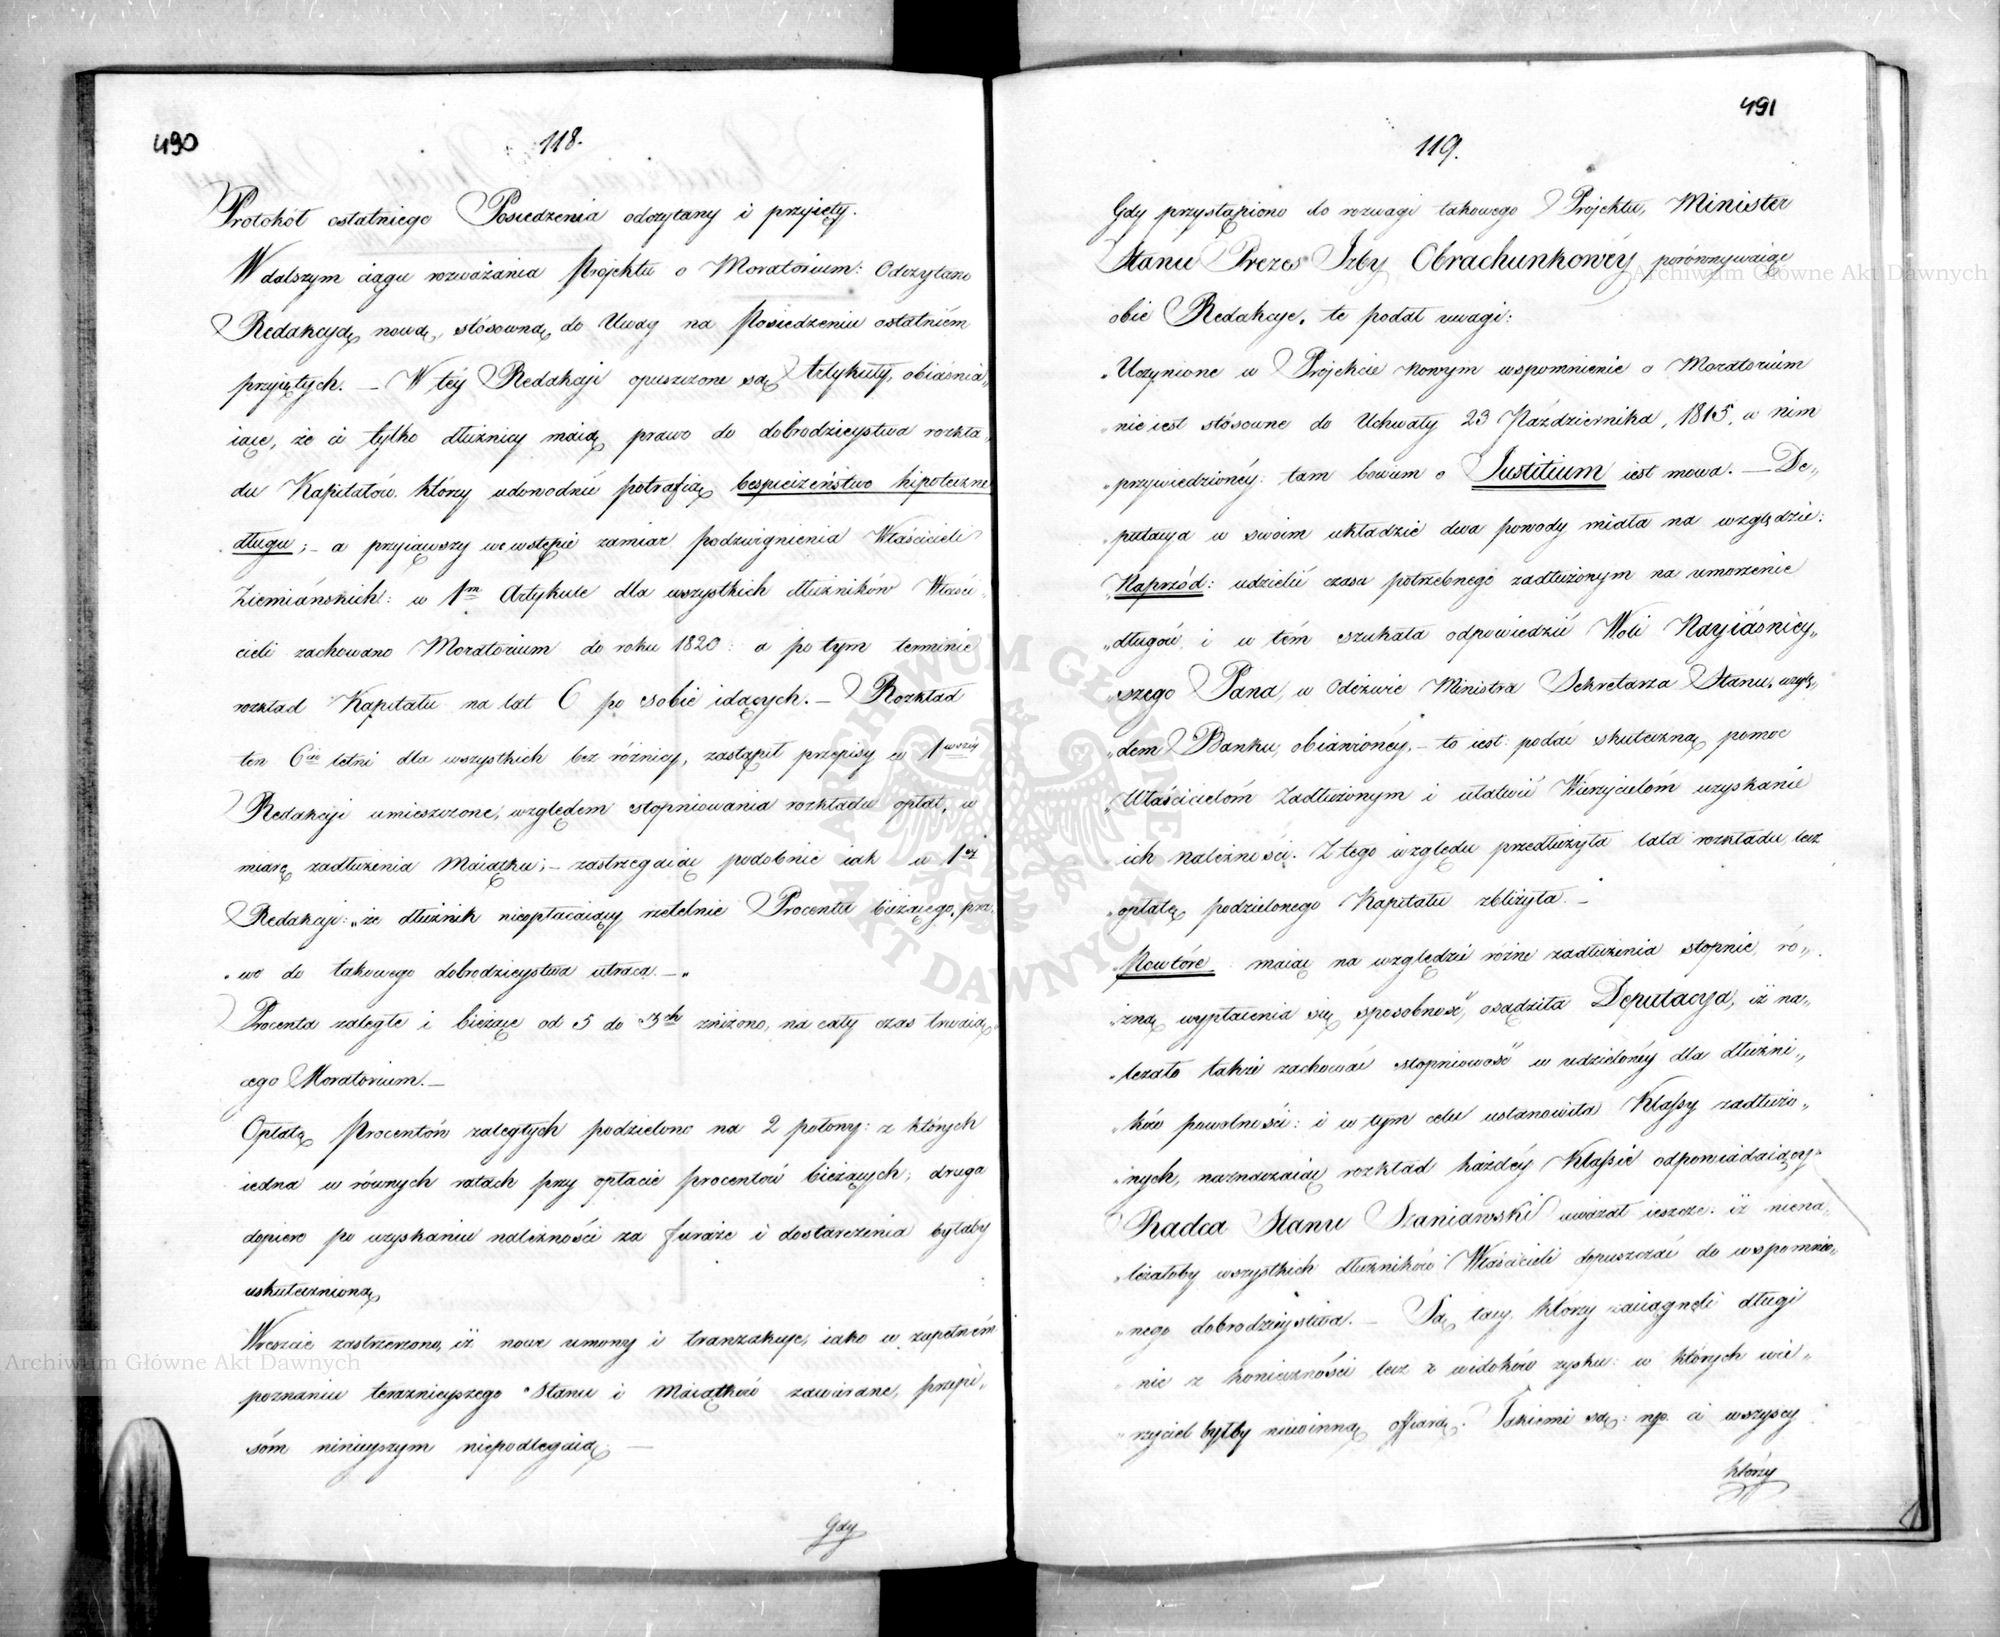 490
118.
Protokół ostatniego Posiedzenia odczytany i przyięty.
W dalszym ciągu rozważania Projektu o Moratorium: Odczytano
Redakcyą nową, stósowną do Uwag na Posiedzeniu ostatniém
przyiętych. — W téy Redakcji opuszczone są Artykuły, obiaśnia„
iące, że ci tylko dłużnicy maią prawo do dobrodzieystwa rozkła„
du Kapitałów, którzy udowodnić potrafią bespieczeństwo hipoteczne
długu; – a przyiąwszy we wstępie zamiar podzwignienia Właścicieli
Ziemiańskich: w 1m Artykule dla wszystkich dłużników Właści„
cieli zachowano Moratorium do roku 1820: a po tym terminie
rozkład Kapitału na lat 6 po sobie idących. – Rozkład
ten 6cio letni dla wszystkich bez różnicy, zastąpił przepisy w 1wszéy
Redakcji umieszczone, względem stopniowania rozkładu opłat, w
miarę zadłużenia Maiątku; – zastrzegaiąc podobnie iak w 1éj
Redakcji: „że dłużnik nieopłacaiący rzetelnie Procentu bieżącego, pra„
„wo do takowego dobrodzieystwa utraca. —„
Procenta zaległe i bieżące od 5 do 3ch zniżono, na cały czas trwaią„
cego Moratorium. —
Opłatę Procentów zaległych podzielono na 2 połowy: z których
iedna w równych ratach przy opłacie procentów bieżących; druga
dopiero po uzyskaniu należności za furaże i dostarczenia byłaby
uskutecznioną
Wreszcie zastrzeżono, iż nowe umowy i tranzakcje, iako w zupełném
poznaniu teraznieyszego Stanu i Maiątków zawierane, przepi„
sóm ninieyszym niepodlegaią. —
Gdy
491
119.
Gdy przystąpiono do rozwagi takowego Projektu, Minister
Stanu Prezes Izby Obrachunkowéy porównywaiąc
obie Redakcje, te podał uwagi:
„Uczynione w Projekcie nowym wspomnienie o Moratorium
„nie iest stósowne do Uchwały 23 Października, 1815, w nim
„przywiedzionéy: tam bowiem o Justitium iest mowa. — De„
„putacya w swoim układzie dwa powody miała na względzie:
„Naprzód: udzielić czasu potrzebnego zadłużonym na umorzenie
„długów, i w tém szukała odpowiedzić Woli Nayiaśniey„
„szego Pana, w Odezwie Ministra Sekretarza Stanu, wzglę„
„dem Banku, obiawionéy, – to iest: podać skuteczną pomoc
„Właścicielóm Zadłużonym i ułatwić Wierzycielóm uzyskanie
„ich należności. Z tego względu przedłużyła lata rozkładu, lecz
„opłatę podzielonego Kapitału zbliżyła. —
„Powtóre: maiąc na względzie różne zadłużenia stopnie, ró„
„żną wypłacenia się sposobność, osądziła Deputacya, iż na„
„leżało także zachować stopniowość w udzielonéy dla dłużni„
„ków powolności: i w tym celu ustanowiła Klassy zadłużo„
„nych, naznaczaiąc rozkład każdéy Klassie odpowiadaiący„
Radca Stanu Szaniawski uważał ieszcze: iż niena„
„leżałoby wszystkich dłużników Właścicieli dopuszczać do wspomnio„
„nego dobrodzieystwa. — Są tacy, którzy zaciągnęli długi
„nie z konieczności lecz z widoków zysku: w których wie„
„rzyciel byłby niewinną offiarą. Takiemi są: np. ci wszyscy
którzy
Archiwum Główne Akt Dawnych
Archiwum Główne Akt Dawnych
ARCHIWUM GŁÓWNE AKT DAWNYCH